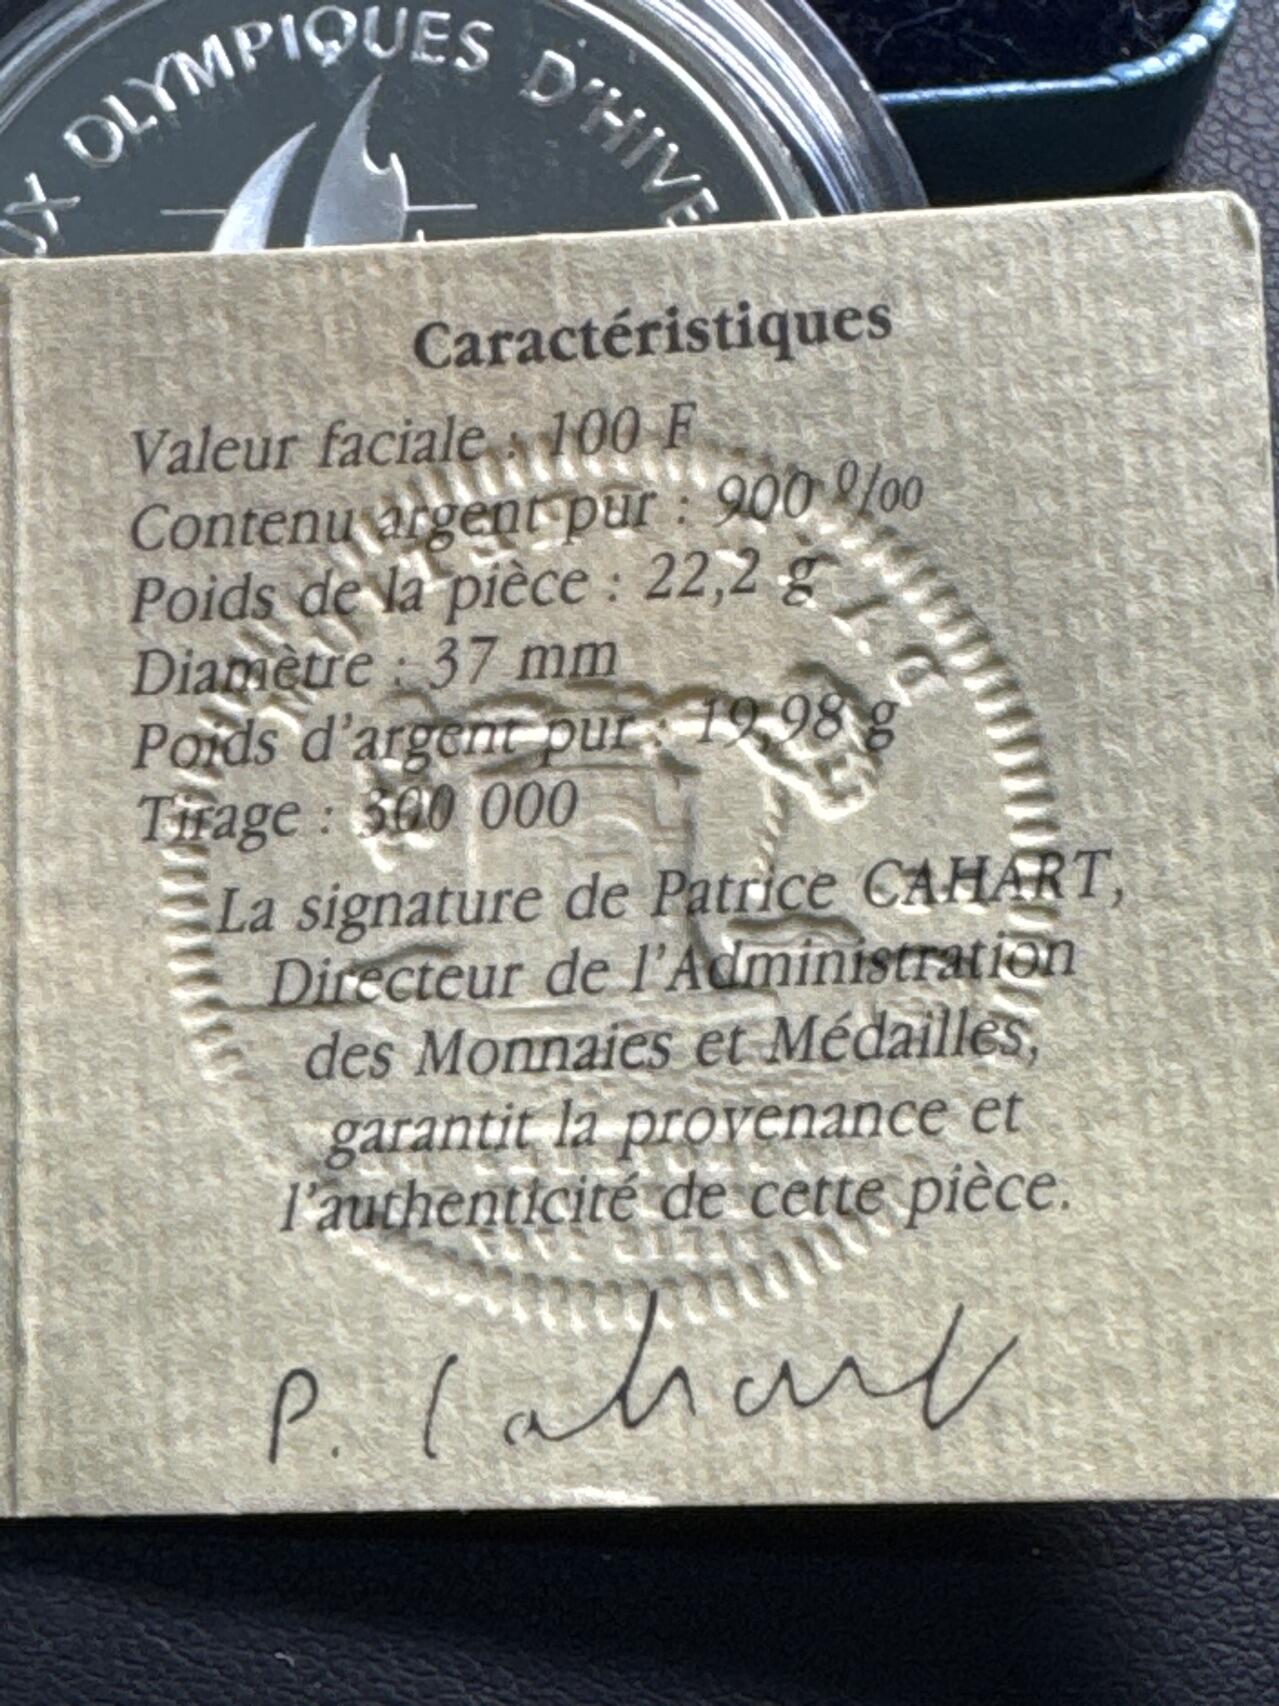 UX OLYMPIQUES D'HIVE
Caractéristiques
Valeur faciale : 100 F
Contenu argent pur : 900 ⁰/₀₀
Poids de la pièce : 22,2 g
Diamètre : 37 mm
Poids d'argent pur : 19,98 g
Tirage : 300 000
La signature de Patrice CAHART,
Directeur de l'Administration
des Monnaies et Médailles,
garantit la provenance et
l'authenticité de cette pièce.
P. Cahart